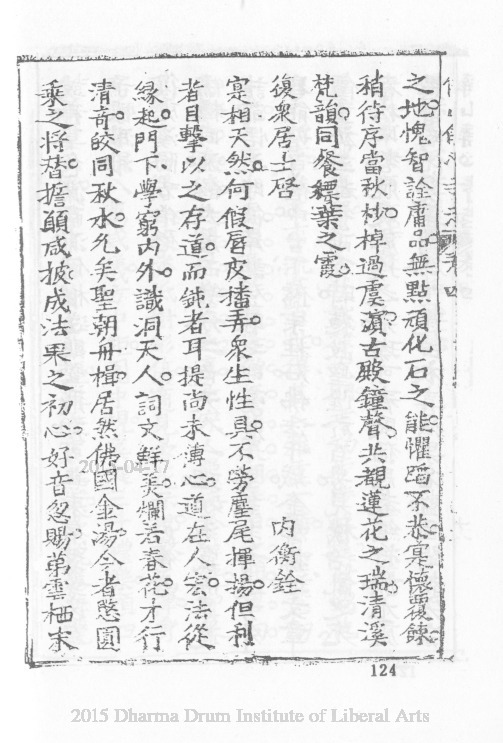 之地愧智詮庸品無點頑化石之能懼蹈不恭寔懷覆餗
稍待序當秋杪棹過虞濵古殿鐘聲共觀蓮花之瑞清溪
梵韻同飱糭葉之霞
復衆居士啓 内衡銓
寔相天然何假唇皮播弄衆生性具不勞麈尾揮揚但利
者目擊以之存道而鈍者耳提尚未溥心道在人宏法從
緣起門下學窮内外識洞天人詞文鮮羙爛若春花才行
清竒皎同秋水允矣聖朝舟楫居然佛國金湯今者愍圓
乘之將替擔顛咸披成法果之初心好音忽賜苐雲栖末
124
2015-04-17
2015 Dharma Drum Institute of Liberal Arts